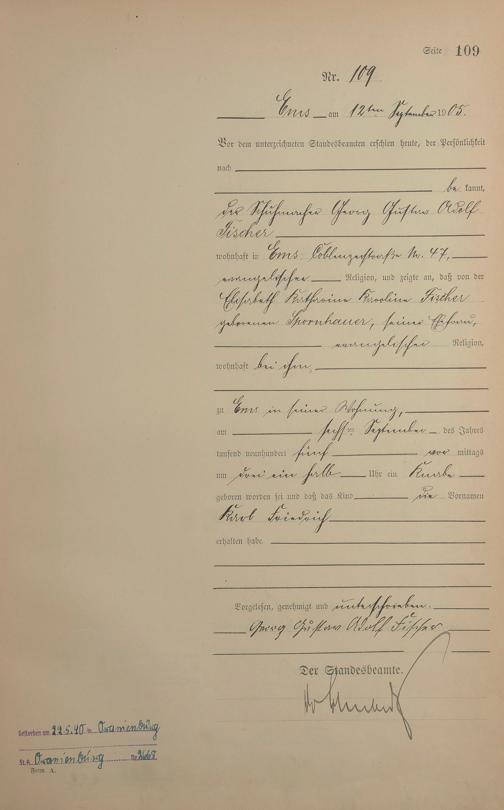 Seite 109
Nr. 109
Ems am 12ten September 1905.
Vor dem unterzeichneten Standesbeamten erschien heute, der Persönlichkeit
nach
be kannt,
der Schuhmacher Georg Gustav Adolf
Fischer
wohnhaft in Ems Coblenzerstraße Nr. 47,
evangelischer Religion, und zeigte an, daß von der
Elisabeth Katharine Karoline Fischer
geborenen Thornhauer, seiner Ehefrau,
evangelischer Religion,
wohnhaft bei ihm,
zu Ems in seiner Wohnung,
am sechsten September des Jahres
tausend neunhundert fünf vor mittags
um drei ein halb Uhr ein Knabe
geboren worden sei und daß das Kind die Vornamen
Karl Friedrich
erhalten habe.
Vorgelesen, genehmigt und unterschrieben.
Georg Gustav Adolf Fischer
Der Standesbeamte.
Gestorben am 22.5.40 in Oranienburg
St.A. Oranienburg Nr.
Form. A.